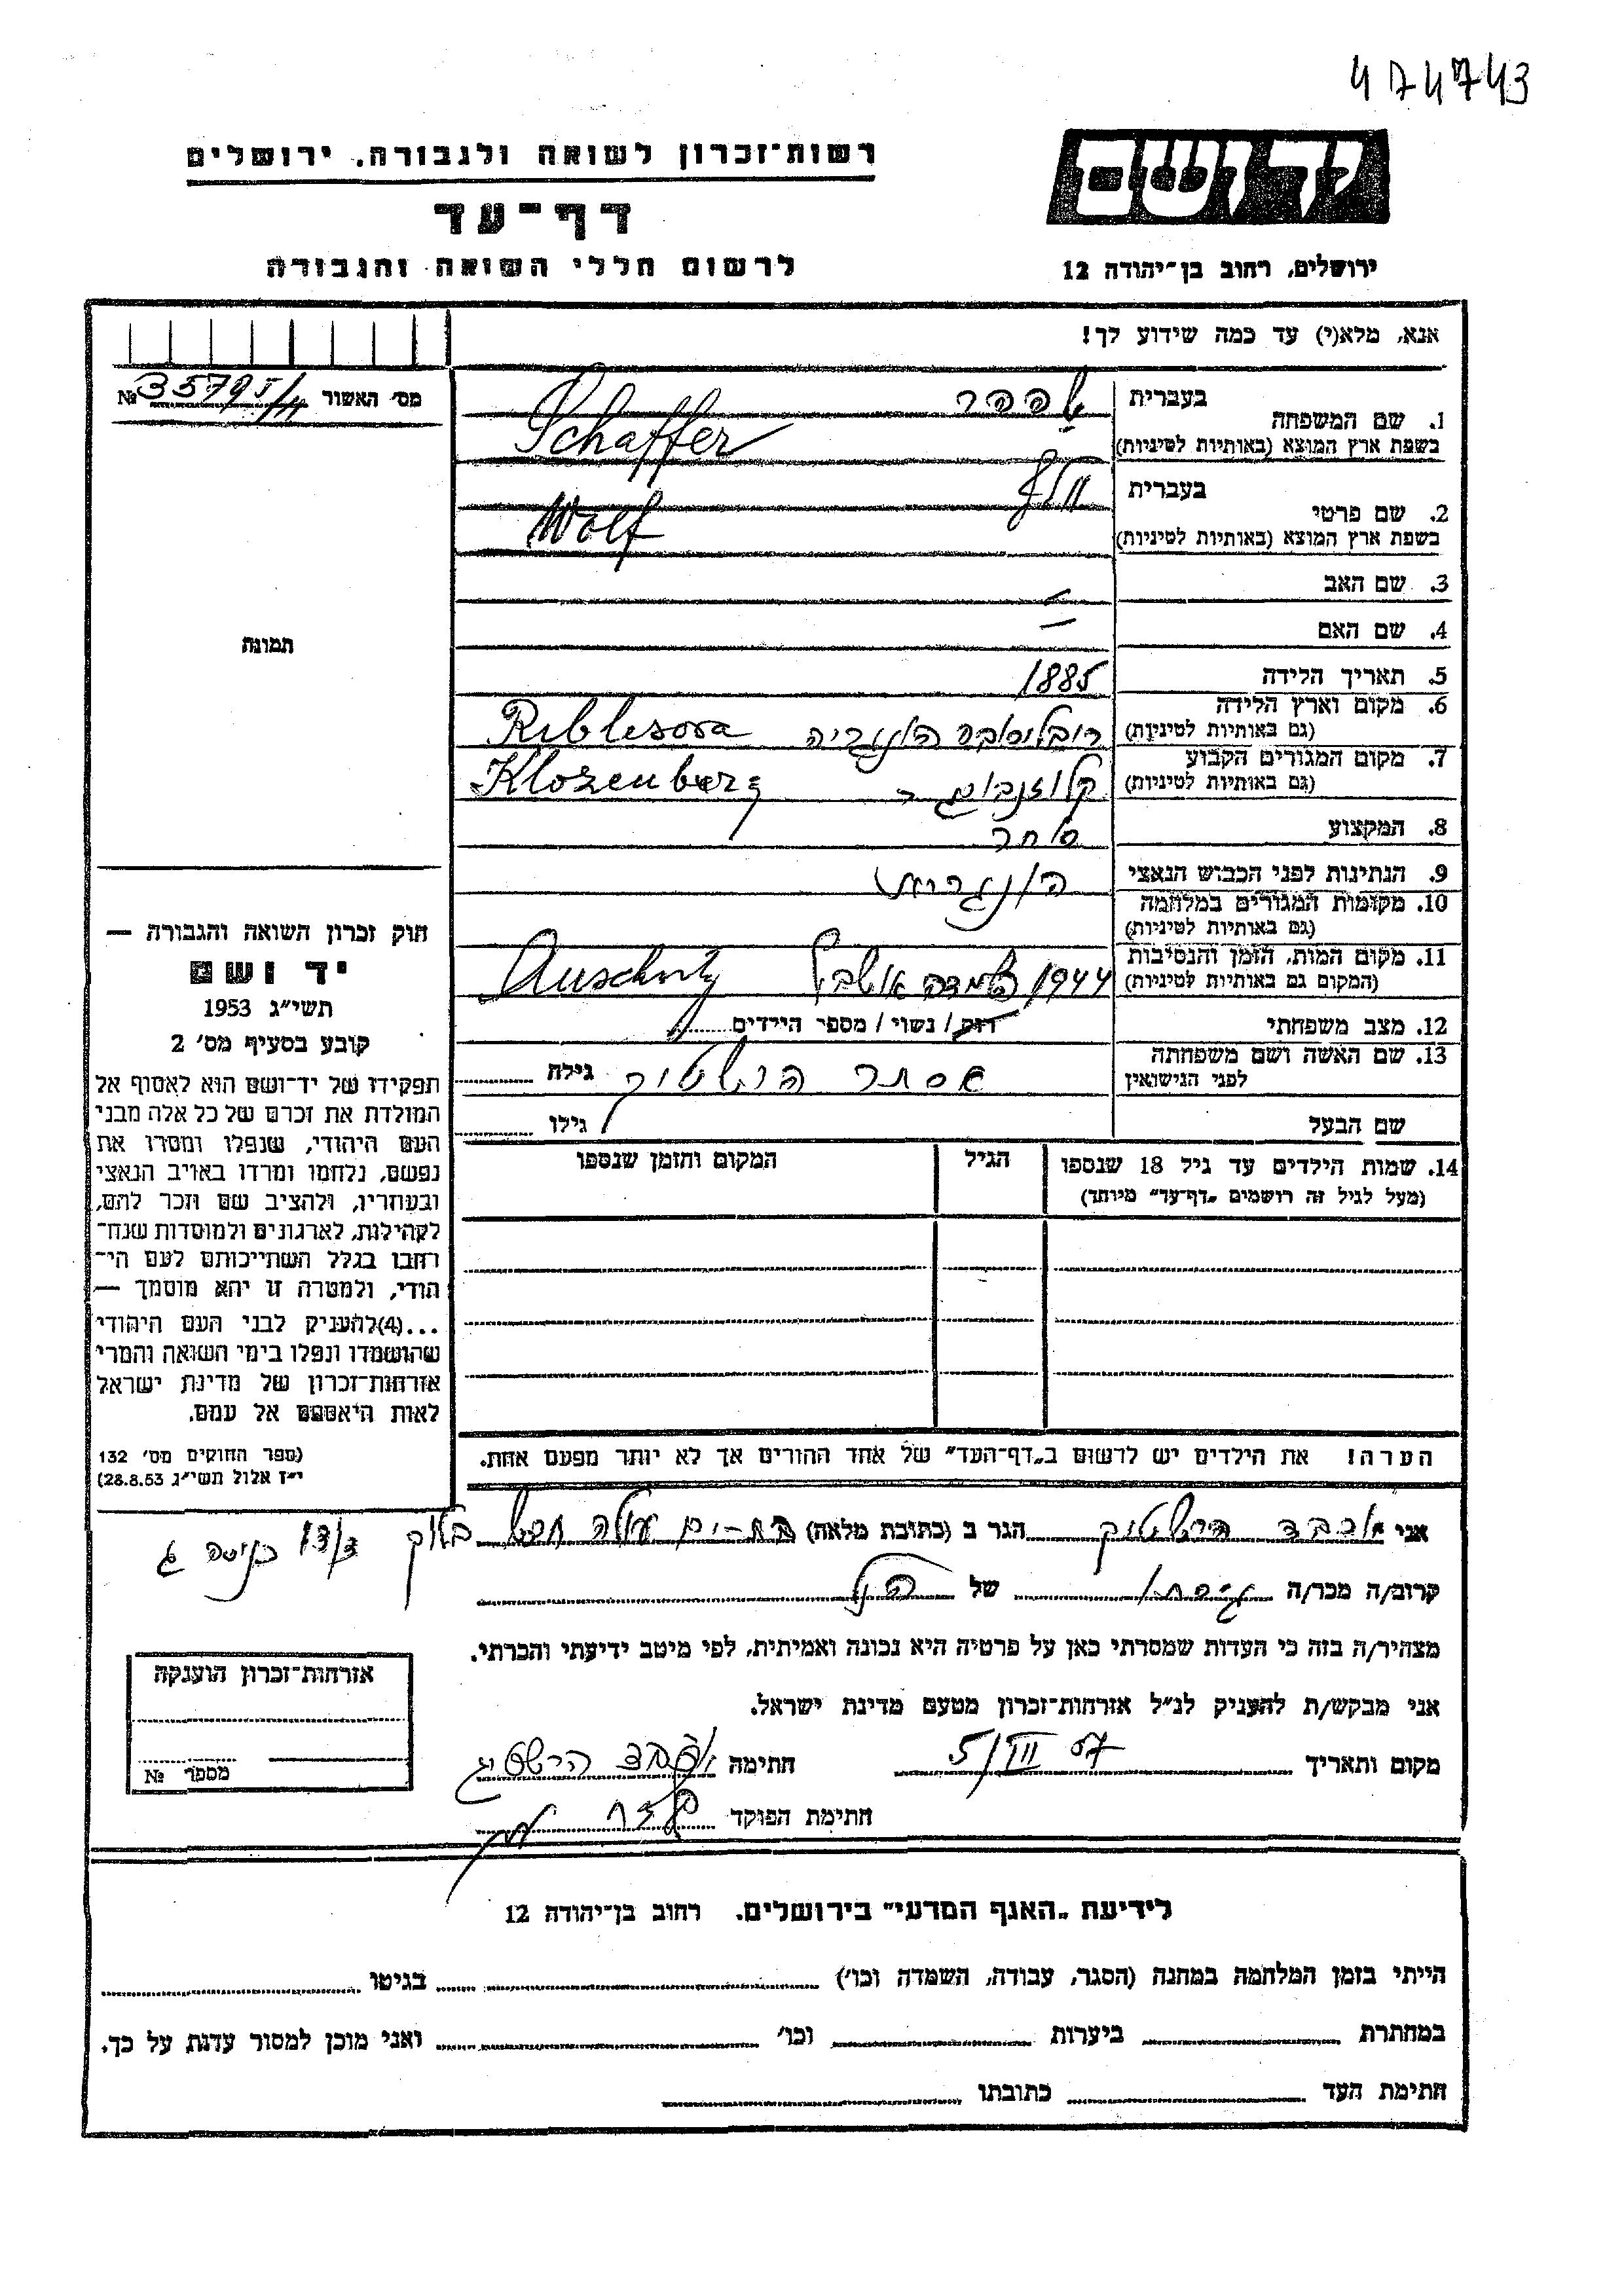 474743
יד ושם
רשות־זכרון לשואה ולגבורה. ירושלים
דף־עד
לרשום חללי השואה והגבורה
ירושלים, רחוב בן־יהודה 12
אנא, מלא(י) עד כמה שידוע לך!
מס׳ האשור № 35795/4
1. שם המשפחה בעברית שפפר
בשפת ארץ המוצא (באותיות לטיניות) Schaffer
2. שם פרטי בעברית וולף
בשפת ארץ המוצא (באותיות לטיניות) Wolf
3. שם האב –
4. שם האם –
תמונה
5. תאריך הלידה 1885
6. מקום וארץ הלידה (גם באותיות לטיניות) הונגריה Riblesova
7. מקום המגורים הקבוע (גם באותיות לטיניות) קלוזנבורג Klozenburg
8. המקצוע סוחר
9. הנתינות לפני הכבוש הנאצי הונגרית
10. מקומות המגורים במלחמה (גם באותיות לטיניות)
11. מקום המות, הזמן והנסיבות (המקום גם באותיות לטיניות) 1944 אושביץ Auschwitz
12. מצב משפחתי רוק / נשוי / מספר הילדים
13. שם האשה ושם משפחתה לפני הנישואין אסתר הרשטיק גילה
שם הבעל גילו
14. שמות הילדים עד גיל 18 שנספו
(מעל לגיל זה רושמים „דף־עד” מיוחד)
הגיל
המקום והזמן שנספו
חוק זכרון השואה והגבורה —
יד ושם
תשי״ג 1953
קובע בסעיף מס׳ 2
תפקידו של יד־ושם הוא לאסוף אל
המולדת את זכרם של כל אלה מבני
העם היהודי, שנפלו ומסרו את
נפשם, נלחמו ומרדו באויב הנאצי
ובעוזריו, ולהציב שם וזכר להם,
לקהילות, לארגונים ולמוסדות שנח־
רחבו בגלל השתייכותם לעם הי־
הודי, ולמטרה זו יהא מוסמך —
...(4)להעניק לבני העם היהודי
שהושמדו ונפלו בימי השואה והמרי
אזרחות־זכרון של מדינת ישראל
לאות היאספם אל עמם.
(ספר החוקים מס׳ 132
י״ז אלול תשי״ג 28.8.53)
הערה! את הילדים יש לרשום ב„דף־העד” של אחד ההורים אך לא יותר מפעם אחת.
אני הרשטיק הגר ב (כתובת מלאה) עולה בלוק כניסה ג
קרוב/ה מכר/ה גיסתו של הנ״ל
מצהיר/ה בזה כי העדות שמסרתי כאן על פרטיה היא נכונה ואמיתית, לפי מיטב ידיעתי והכרתי.
אני מבקש/ת להעניק לנ״ל אזרחות־זכרון מטעם מדינת ישראל.
מקום ותאריך 5/III 57 חתימה
חתימת הפוקד
אזרחות־זכרון הוענקה
מספר №
לידיעת „האגף המדעי” בירושלים. רחוב בן־יהודה 12
הייתי בזמן המלחמה במחנה (הסגר, עבודה, השמדה וכו׳) בגיטו
במחתרת ביערות וכו׳ ואני מוכן למסור עדות על כך.
חתימת העד כתובתו